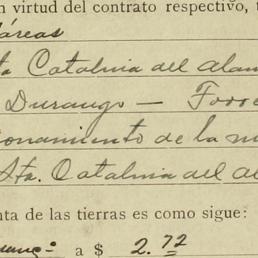 n virtud del contrato respectivo, t
áreas
ta Catalina del Alam
Durango — Torre
onamiento de la m
Sta. Catalina del Al
nta de las tierras es como sigue:
rang- a $ 2.72